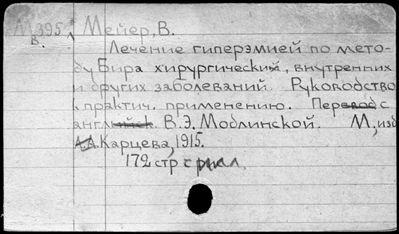 М395 Мейер, В.
В.
Лечение гиперэмией по мето-
ду Бира хирургических, внутренних
и других заболеваний. Руководство
к практич. применению. Перевод с
англ В. Э. Модлинской. М, изд
А.А. Карцева, 1915.
172 стр с рисл.